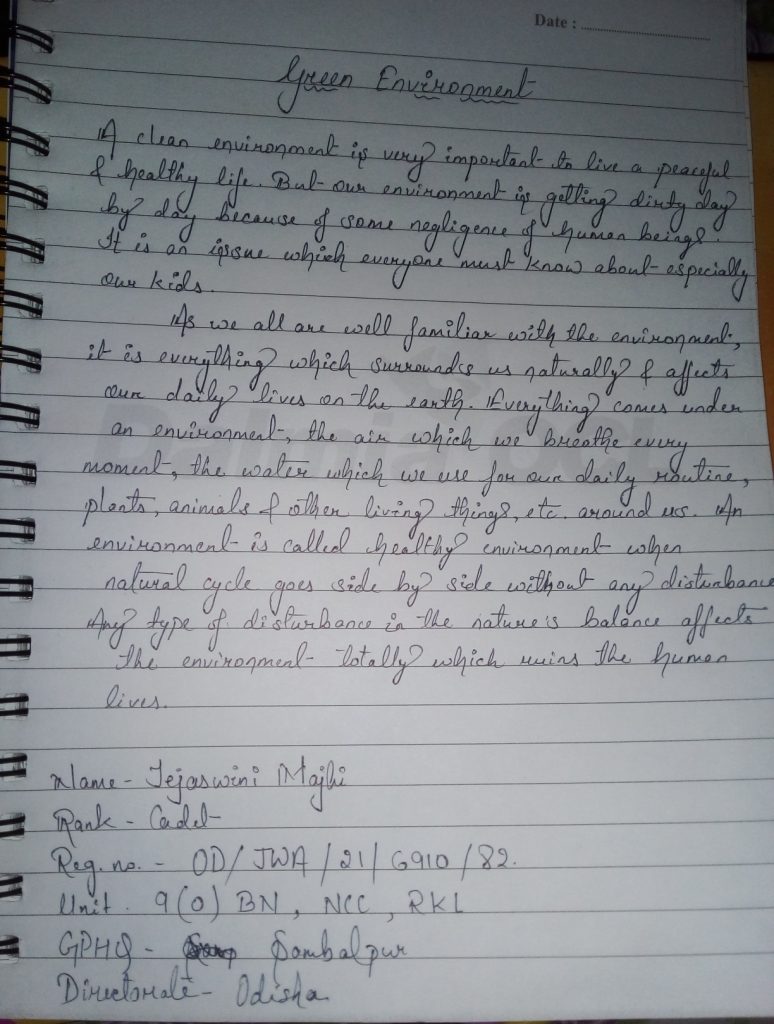 Date : ..............................
Green Environment
A clean environment is very important to live a peaceful
& healthy life. But our environment is getting dirty day
by day because of some negligence of human beings.
It is an issue which everyone must know about especially
our kids.
As we all are well familiar with the environment,
it is everything which surrounds us naturally & affects
our daily lives on the earth. Everything comes under
an environment, the air which we breathe every
moment, the water which we use for our daily routine,
plants, animals & other living things, etc. around us. An
environment is called healthy environment when
natural cycle goes side by side without any disturbance
Any type of disturbance in the nature's balance affects
the environment totally which ruins the human
lives.
Name - Tejaswini Majhi
Rank - Cadet
Reg. no. - OD/JWA/21/6910/82.
Unit. 9(O) BN, NCC, RKL
GPHQ - Sambalpur
Directorate - Odisha